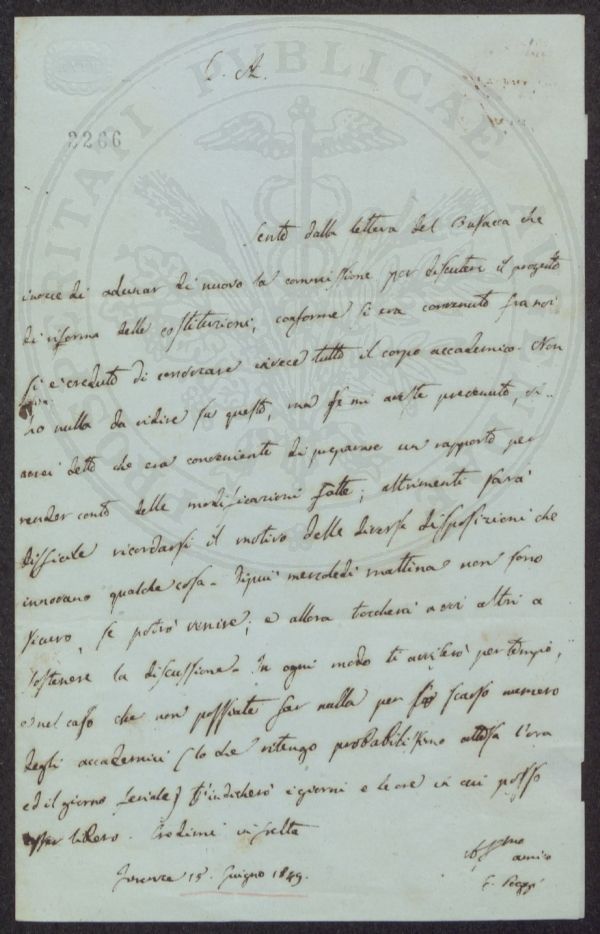 C. A.
2266
PROSPERITATI PVBLICAE AVGENDAE
Sento dalla lettera del Busacca che
invece di adunar di nuovo la commissione per discutere il progetto
di riforma delle costituzioni, conforme si era convenuto fra noi
si è creduto di convocare invece tutto il corpo accademico. Non
ho nulla da ridire su questo, ma se mi aveste prevenuto, vi
avrei detto che era conveniente di preparare un rapporto per
render conto delle modificazioni fatte; altrimenti sarà
difficile ricordarsi il motivo delle diverse disposizioni che
innovano qualche cosa. Di più mercoledì mattina non sono
sicuro, se potrò venire; e allora toccherà a voi altri a
sostenere la discussione. In ogni modo ti avviserò per tempo,
e nel caso che non possiate far nulla per scarso numero
degli accademici (lo che ritengo probabilissimo attesa l'ora
ed il giorno feriale) t'indicherò i giorni e le ore in cui posso
esser libero. Credimi in fretta
Firenze 15 Giugno 1849.
Aff.mo
amico
E. Poggi